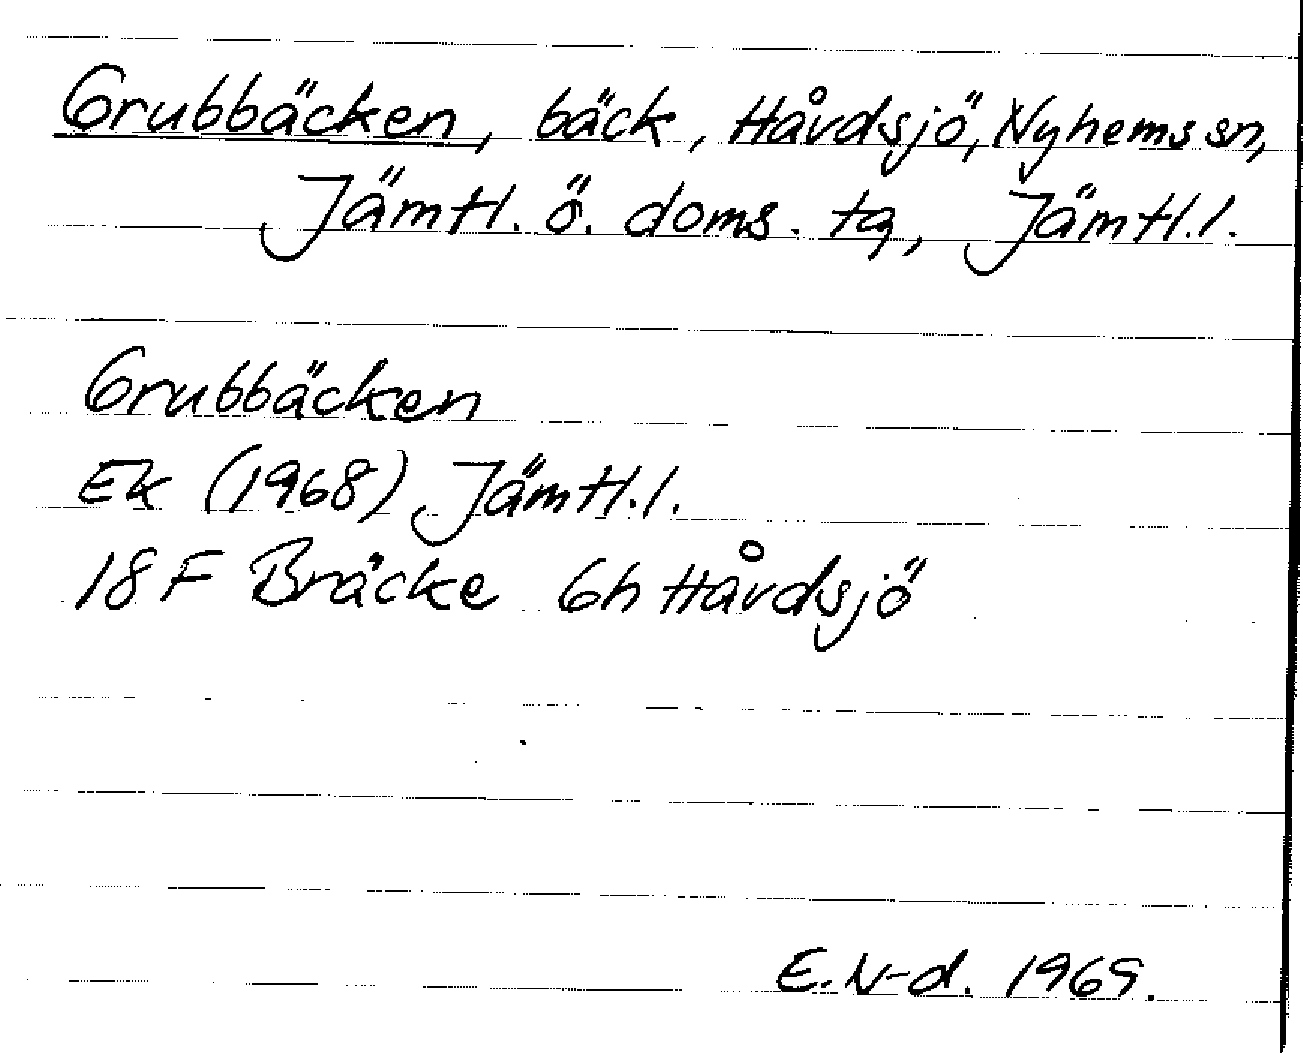 Grubbäcken, bäck, Håvdsjö, Nyhems sn,
Jämtl. ö. doms. tg, Jämtl. l.
Grubbäcken
Ek (1968) Jämtl. l.
18F Bräcke 6h Håvdsjö
E. N-d. 1969.